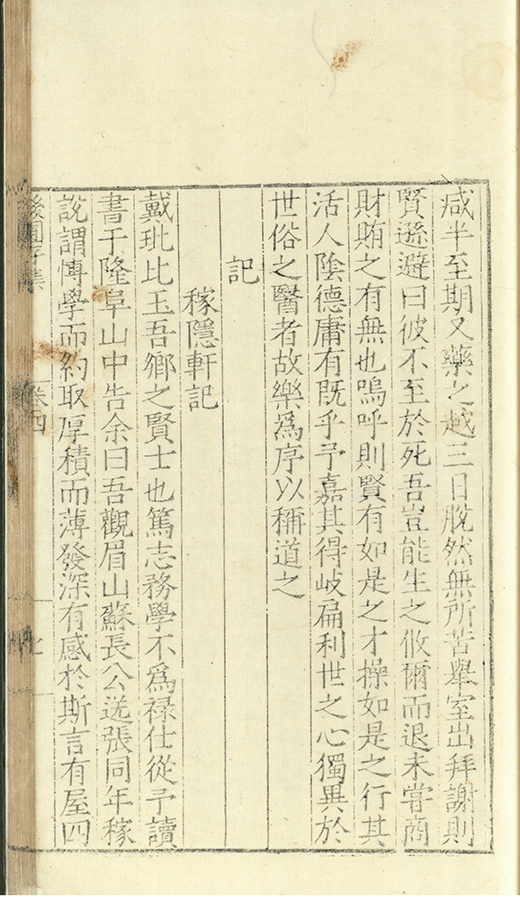 咸半至期又藥之越三日脫然無所苦舉室出拜謝則
賢遜避曰彼不至於死吾豈能生之攸爾而退未嘗商
財賄之有無也嗚呼則賢有如是之才操如是之行其
活人陰德庸有既乎予嘉其得岐扁利世之心獨異於
世俗之醫者故樂為序以稱道之
記
稼隱軒記
戴玭比玉吾鄉之賢士也篤志務學不為祿仕從予讀
書于隆阜山中告余曰吾觀眉山蘇長公送張同年稼
說謂博學而約取厚積而薄發深有感於斯言有屋四
後圃存集
卷四
七